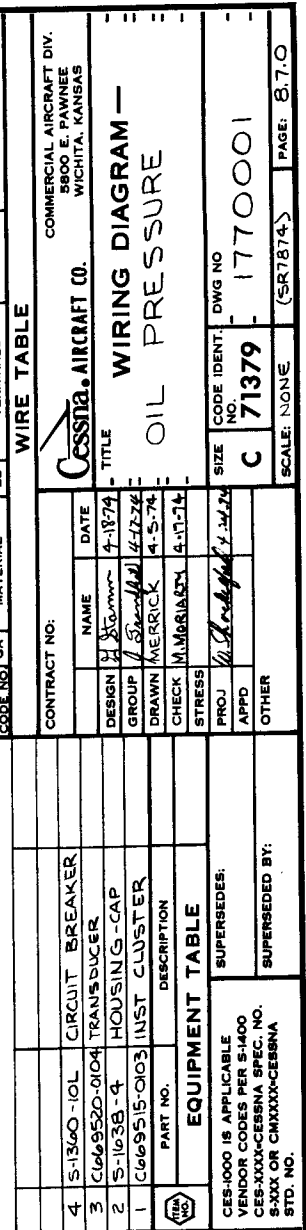 CODE NO.
MATERIAL
WIRE TABLE
4 S-1360-10L CIRCUIT BREAKER
3 C669520-0104 TRANSDUCER
2 S-1638-4 HOUSING-CAP
1 C669515-0103 INST CLUSTER
ITEM NO. PART NO. DESCRIPTION
EQUIPMENT TABLE
CES-1000 IS APPLICABLE
VENDOR CODES PER S-1400
CES-XXXX=CESSNA SPEC. NO.
S-XXX OR CMXXXX=CESSNA
STD. NO.
SUPERSEDES:
SUPERSEDED BY:
CONTRACT NO:
NAME DATE
DESIGN 4-18-74
GROUP 4-17-74
DRAWN MERRICK 4-5-74
CHECK M.MORIARTY 4-17-74
STRESS
PROJ
APPD
OTHER
Cessna. AIRCRAFT CO.
COMMERCIAL AIRCRAFT DIV.
5800 E. PAWNEE
WICHITA, KANSAS
TITLE
WIRING DIAGRAM—
OIL PRESSURE
SIZE C
CODE IDENT. NO. 71379
DWG NO 1770001
SCALE: NONE (SR7874) PAGE: 8.7.0